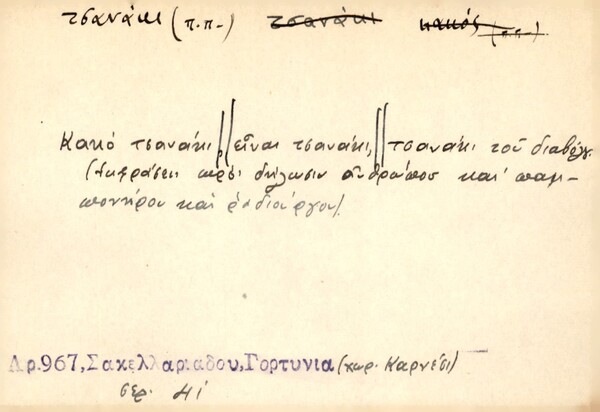 τσανάκι (π.π-) τσανάκι κακός (π.π-)
Κακό τσανάκι, || εἶναι τσανάκι, || τσανάκι τοῦ διαβόλ.
(Ἐκφράσεις πρός δήλωσιν ἀνθρώπος καί παμ-
πονήρου καί ραδιούργου).
Αρ.967, Σακελλαριαδου, Γορτυνια (χωρ. Καρνέσι)
σερ. 41